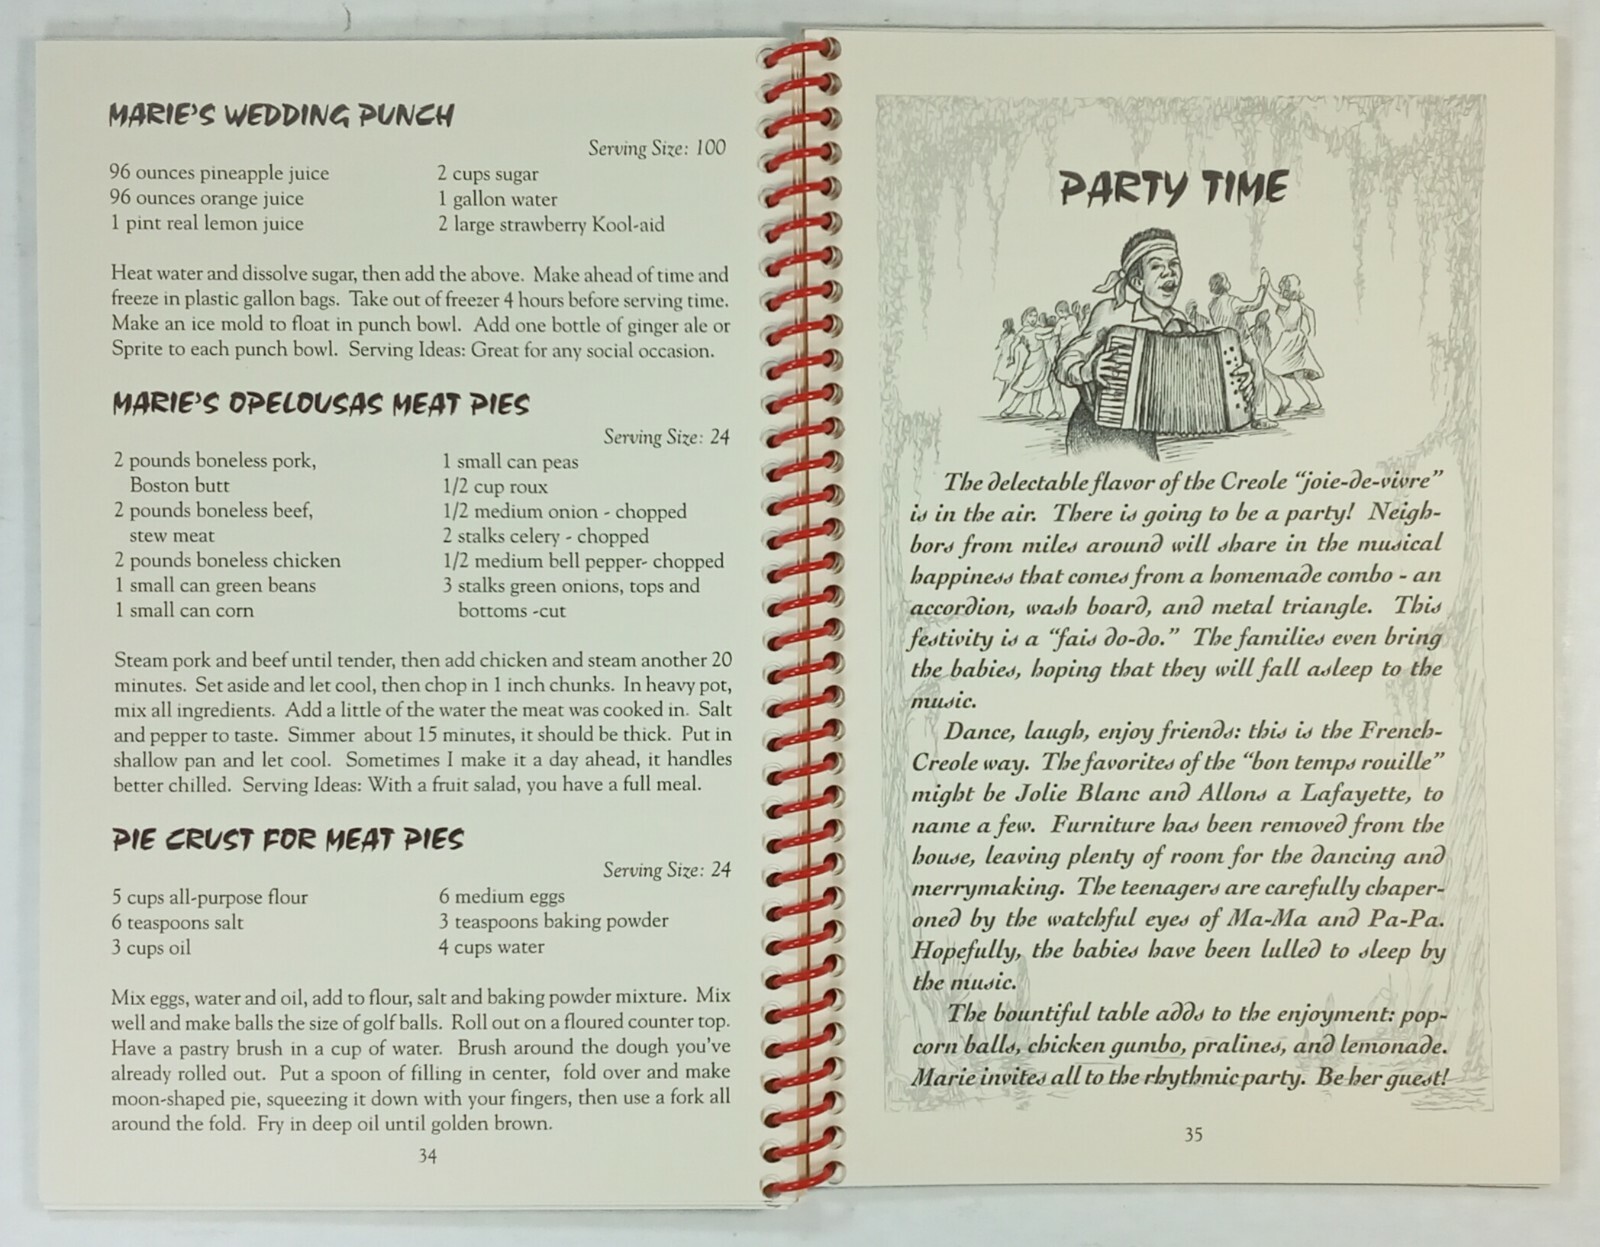 MARIE'S WEDDING PUNCH
Serving Size: 100
96 ounces pineapple juice
96 ounces orange juice
1 pint real lemon juice
2 cups sugar
1 gallon water
2 large strawberry Kool-aid
Heat water and dissolve sugar, then add the above. Make ahead of time and
freeze in plastic gallon bags. Take out of freezer 4 hours before serving time.
Make an ice mold to float in punch bowl. Add one bottle of ginger ale or
Sprite to each punch bowl. Serving Ideas: Great for any social occasion.
MARIE'S OPELOUSAS MEAT PIES
Serving Size: 24
2 pounds boneless pork,
Boston butt
2 pounds boneless beef,
stew meat
2 pounds boneless chicken
1 small can green beans
1 small can corn
1 small can peas
1/2 cup roux
1/2 medium onion - chopped
2 stalks celery - chopped
1/2 medium bell pepper- chopped
3 stalks green onions, tops and
bottoms -cut
Steam pork and beef until tender, then add chicken and steam another 20
minutes. Set aside and let cool, then chop in 1 inch chunks. In heavy pot,
mix all ingredients. Add a little of the water the meat was cooked in. Salt
and pepper to taste. Simmer about 15 minutes, it should be thick. Put in
shallow pan and let cool. Sometimes I make it a day ahead, it handles
better chilled. Serving Ideas: With a fruit salad, you have a full meal.
PIE CRUST FOR MEAT PIES
Serving Size: 24
5 cups all-purpose flour
6 teaspoons salt
3 cups oil
6 medium eggs
3 teaspoons baking powder
4 cups water
Mix eggs, water and oil, add to flour, salt and baking powder mixture. Mix
well and make balls the size of golf balls. Roll out on a floured counter top.
Have a pastry brush in a cup of water. Brush around the dough you've
already rolled out. Put a spoon of filling in center, fold over and make
moon-shaped pie, squeezing it down with your fingers, then use a fork all
around the fold. Fry in deep oil until golden brown.
34
PARTY TIME
The delectable flavor of the Creole "joie-de-vivre"
is in the air. There is going to be a party! Neigh-
bors from miles around will share in the musical
happiness that comes from a homemade combo - an
accordion, wash board, and metal triangle. This
festivity is a "fais do-do." The families even bring
the babies, hoping that they will fall asleep to the
music.
Dance, laugh, enjoy friends: this is the French-
Creole way. The favorites of the "bon temps rouille"
might be Jolie Blanc and Allons a Lafayette, to
name a few. Furniture has been removed from the
house, leaving plenty of room for the dancing and
merrymaking. The teenagers are carefully chaper-
oned by the watchful eyes of Ma-Ma and Pa-Pa.
Hopefully, the babies have been lulled to sleep by
the music.
The bountiful table adds to the enjoyment: pop-
corn balls, chicken gumbo, pralines, and lemonade.
Marie invites all to the rhythmic party. Be her guest!
35